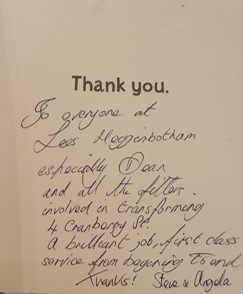 Thank you.
To everyone at
Lees Hegginbotham
especially Dean
and all the fitters.
involved in transforming
4 Cranberry St.
A brilliant job, first class
service from begining to end
Thanks! Steve & Angela